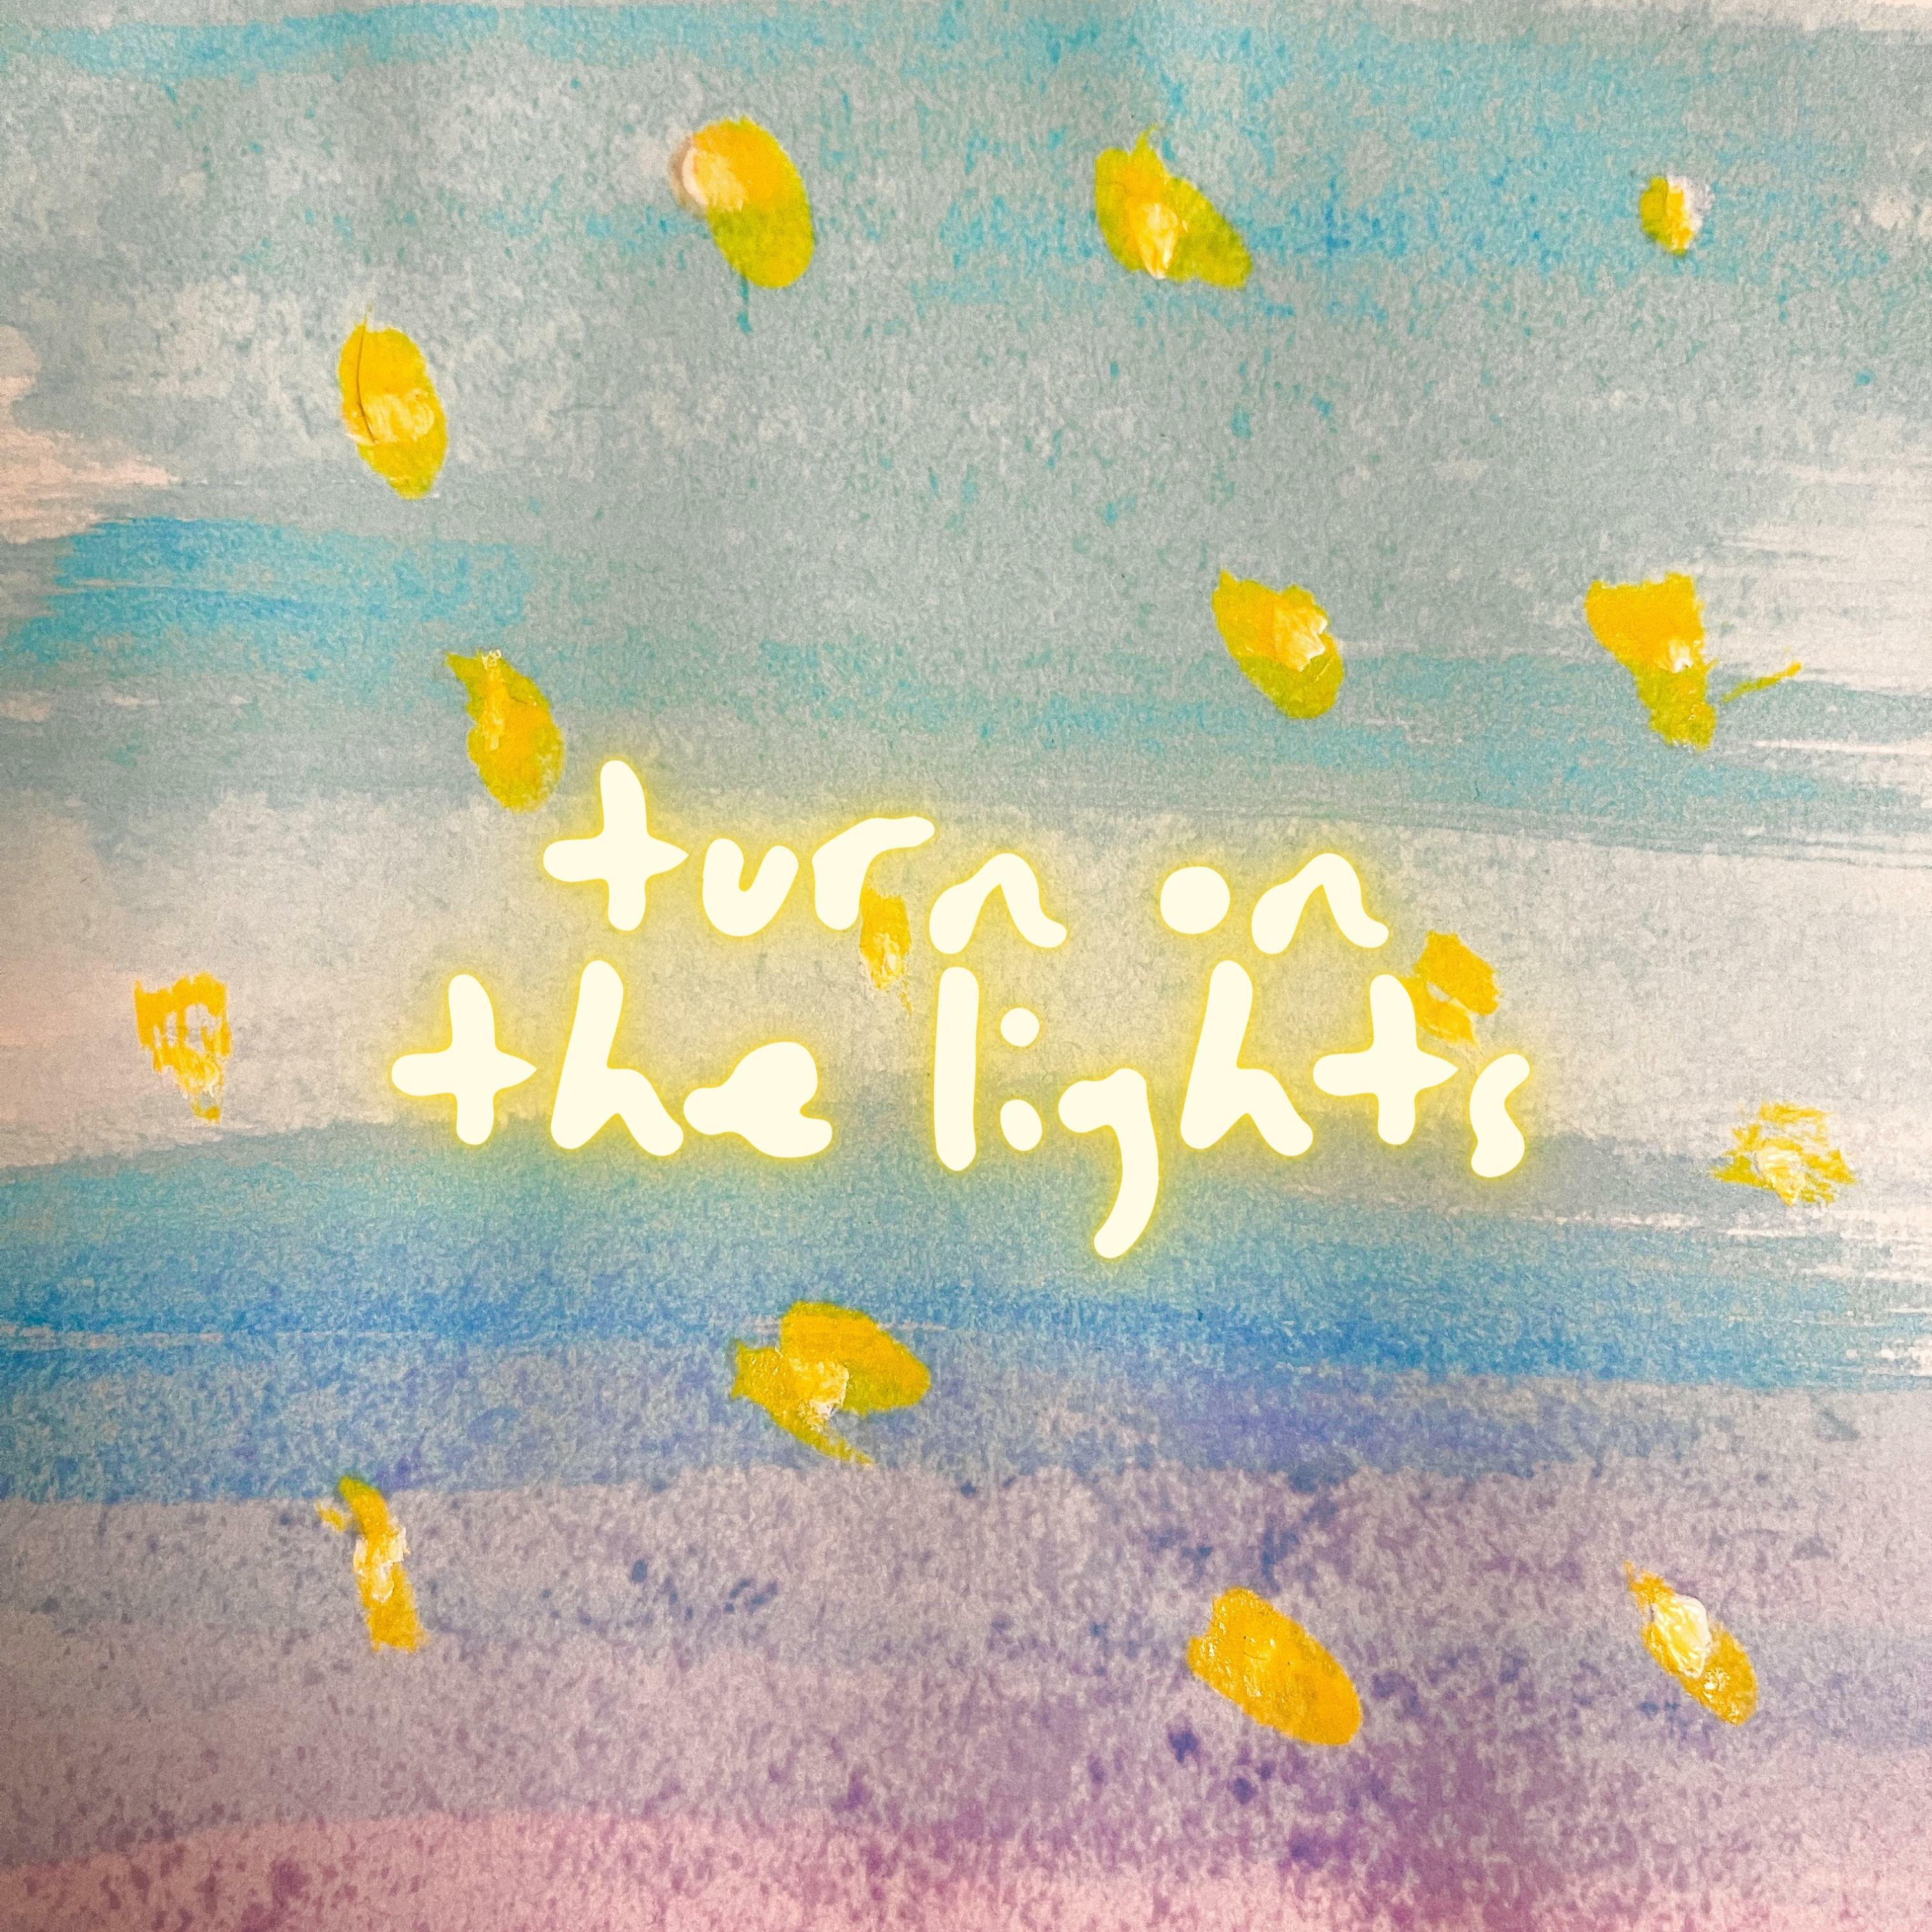 turn on
the lights